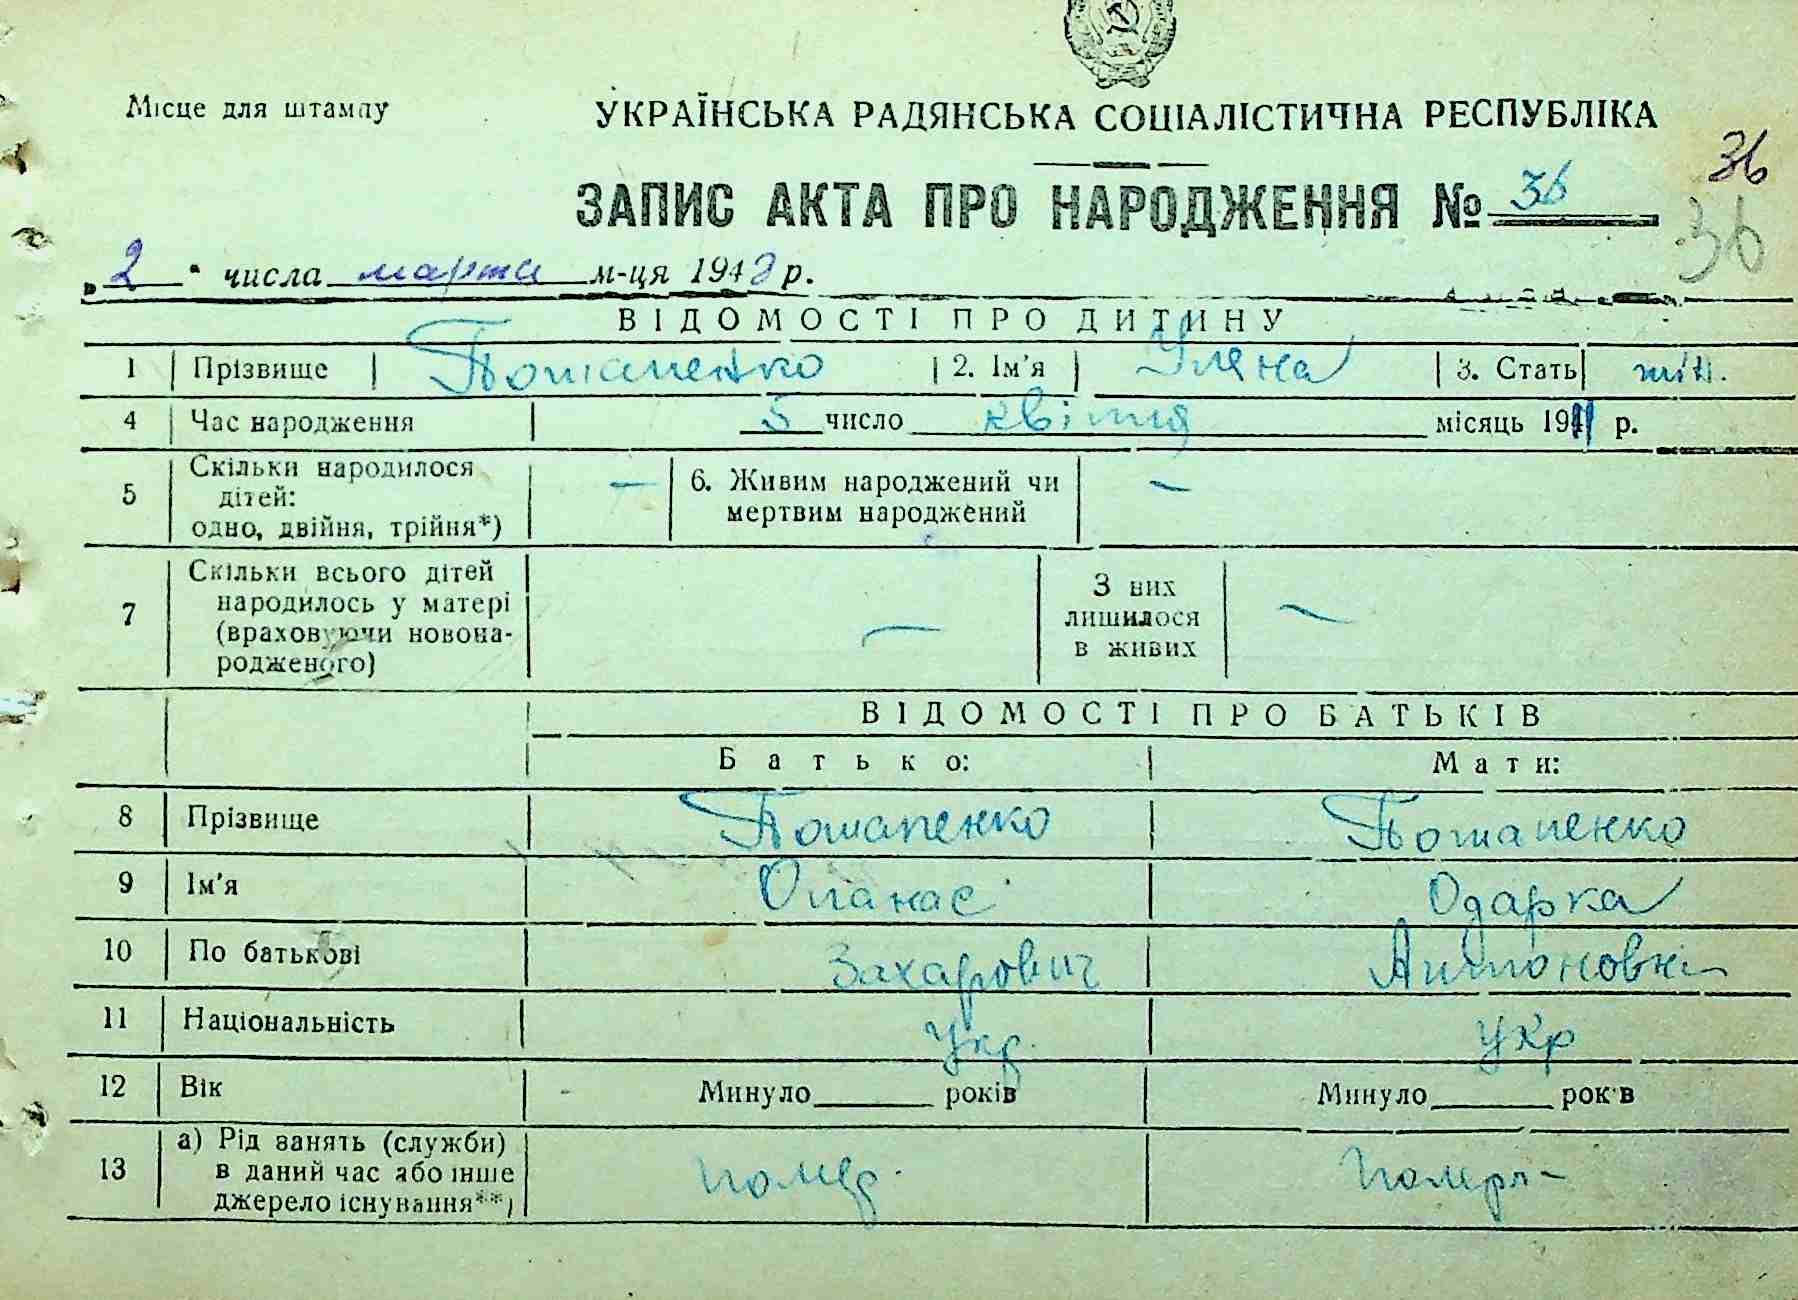 Місце для штампу
УКРАЇНСЬКА РАДЯНСЬКА СОЦІАЛІСТИЧНА РЕСПУБЛІКА
36
ЗАПИС АКТА ПРО НАРОДЖЕННЯ № 36
36
„2" числа марта м-ця 1943 р.
ВІДОМОСТІ ПРО ДИТИНУ
1 Прізвище Потапенко 2. Ім'я Уляна 3. Стать жін.
4 Час народження 5 число квітня місяць 19 р.
5 Скільки народилося дітей: одно, двійня, трійня*) — 6. Живим народжений чи мертвим народжений —
7 Скільки всього дітей народилось у матері (враховуючи новонародженого) — З них лишилося в живих —
ВІДОМОСТІ ПРО БАТЬКІВ
Батько: Мати:
8 Прізвище Потапенко Потапенко
9 Ім'я Опанас Одарка
10 По батькові Захарович Антоновна
11 Національність Укр. Укр
12 Вік Минуло років Минуло рок в
13 а) Рід занять (служби) в даний час або інше джерело існування**) помер. померла